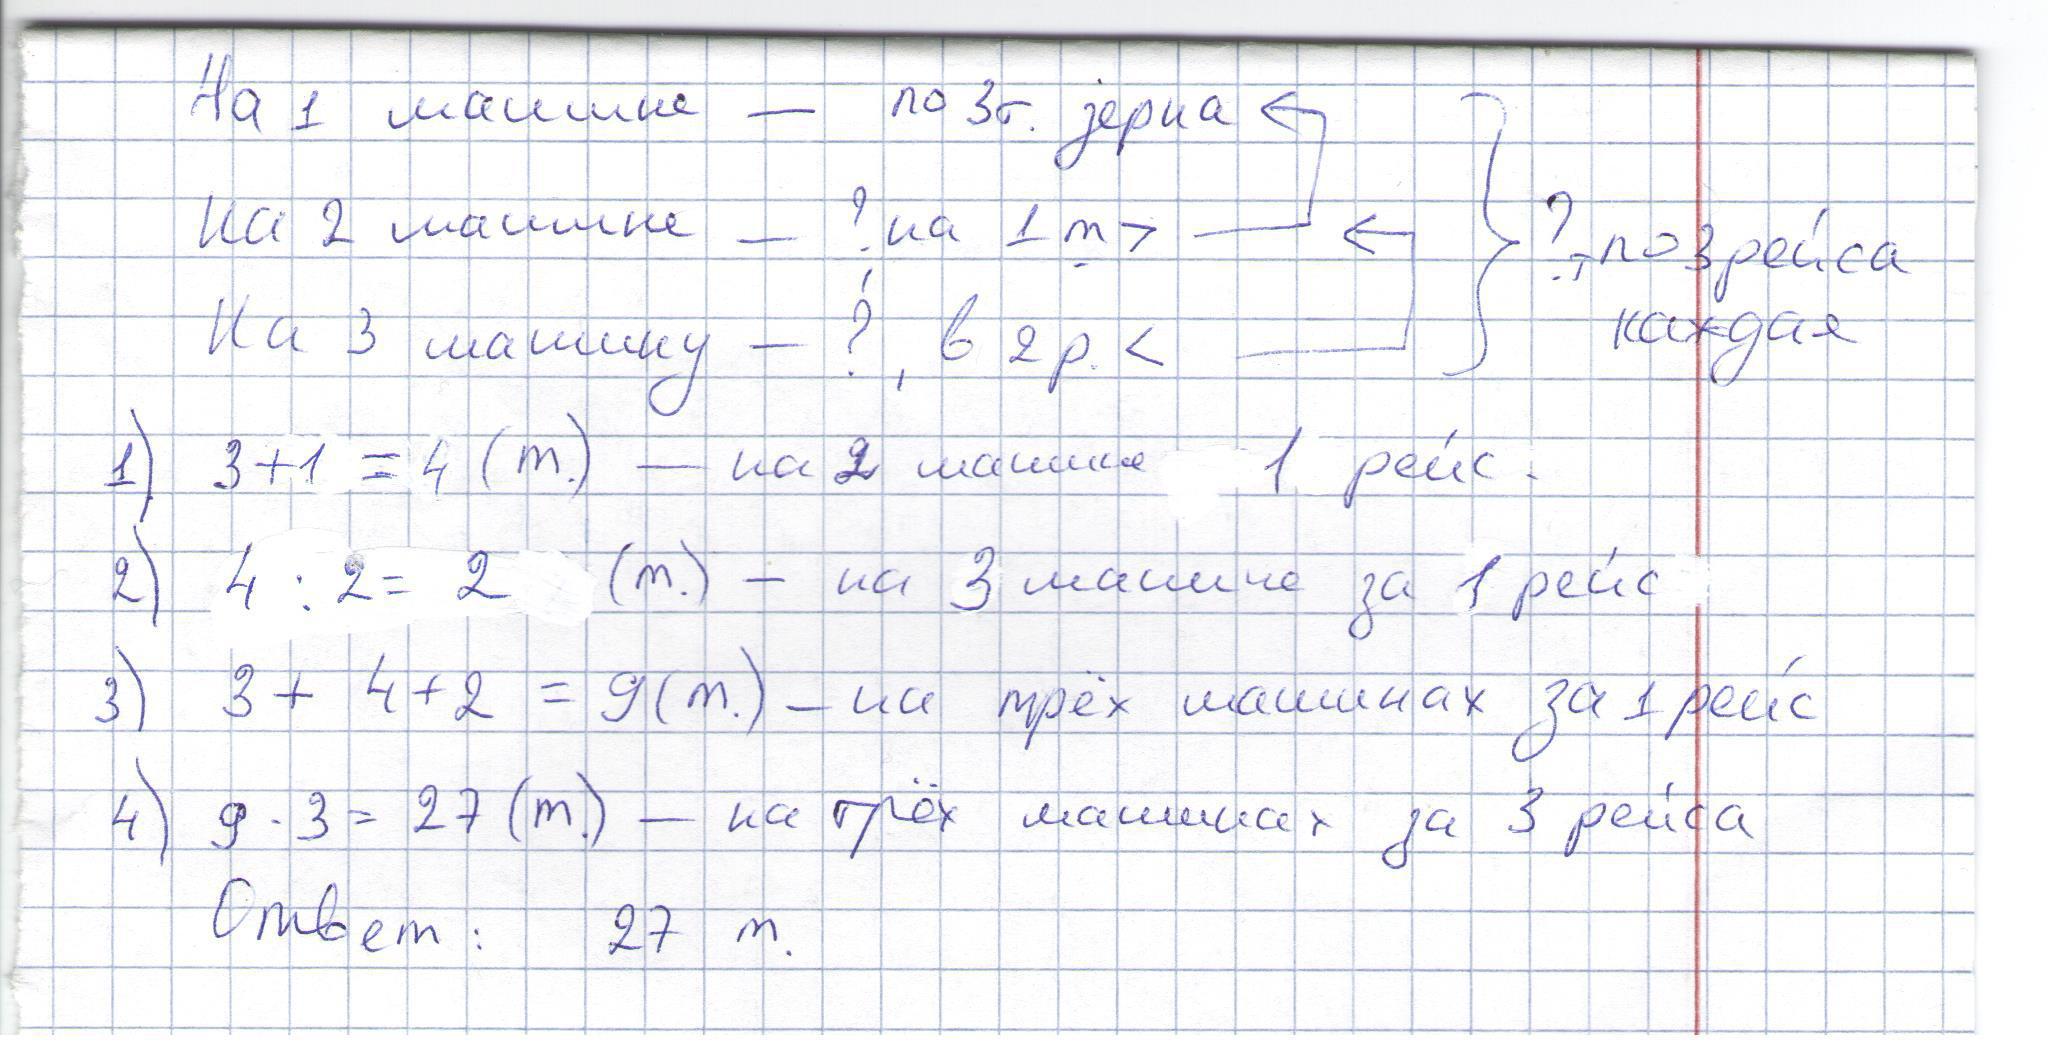 На 1 машине — по 3т. зерна
На 2 машине — ?, на 1 т >
? т по 3 рейса
каждая
На 3 машину — ?, в 2 р. <
1) 3+1 = 4 (т.) — на 2 машине 1 рейс.
2) 4 : 2 = 2 (т.) — на 3 машине за 1 рейс
3) 3 + 4 + 2 = 9 (т.) — на трёх машинах за 1 рейс
4) 9 · 3 = 27 (т.) — на трёх машинах за 3 рейса
Ответ: 27 т.